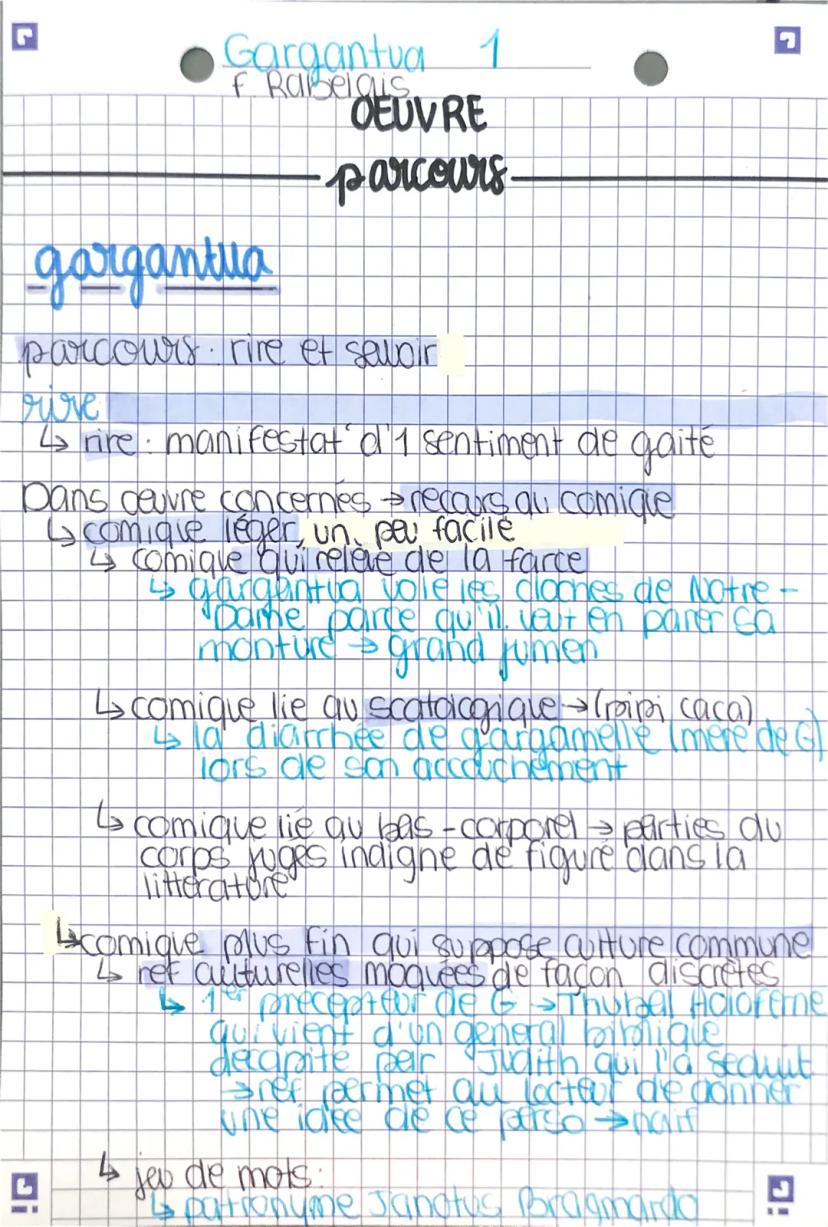 Gargantua 1
F. Rabelais
OEUVRE
parcours
gargantua
parcours : rire et savoir
rire
↳ rire : manifestat° d'1 sentiment de gaité
Dans œuvre concernés → recours au comique
↳ comique léger, un peu facile
↳ comique qui relève de la farce
↳ gargantua vole les cloches de Notre-
Dame parce qu'il veut en parer sa
monture → grand jumen
↳ comique lie au scatologique → (pipi caca)
↳ la diarrhée de gargamelle (mère de G)
lors de son accouchement
↳ comique lié au bas-corporel → parties du
corps jugés indigne de figuré dans la
littérature
↳ comique plus fin qui suppose culture commune
↳ ref culturelles moquées de façon discrètes
↳ 1er précepteur de G → Thubal Holoferne
qui vient d'un general biblique
décapité par Judith qui l'a séduit
→ ref permet au lecteur de donner
une idée de ce perso → naïf
↳ jeu de mots :
↳ patronyme Janotus Bragmardo